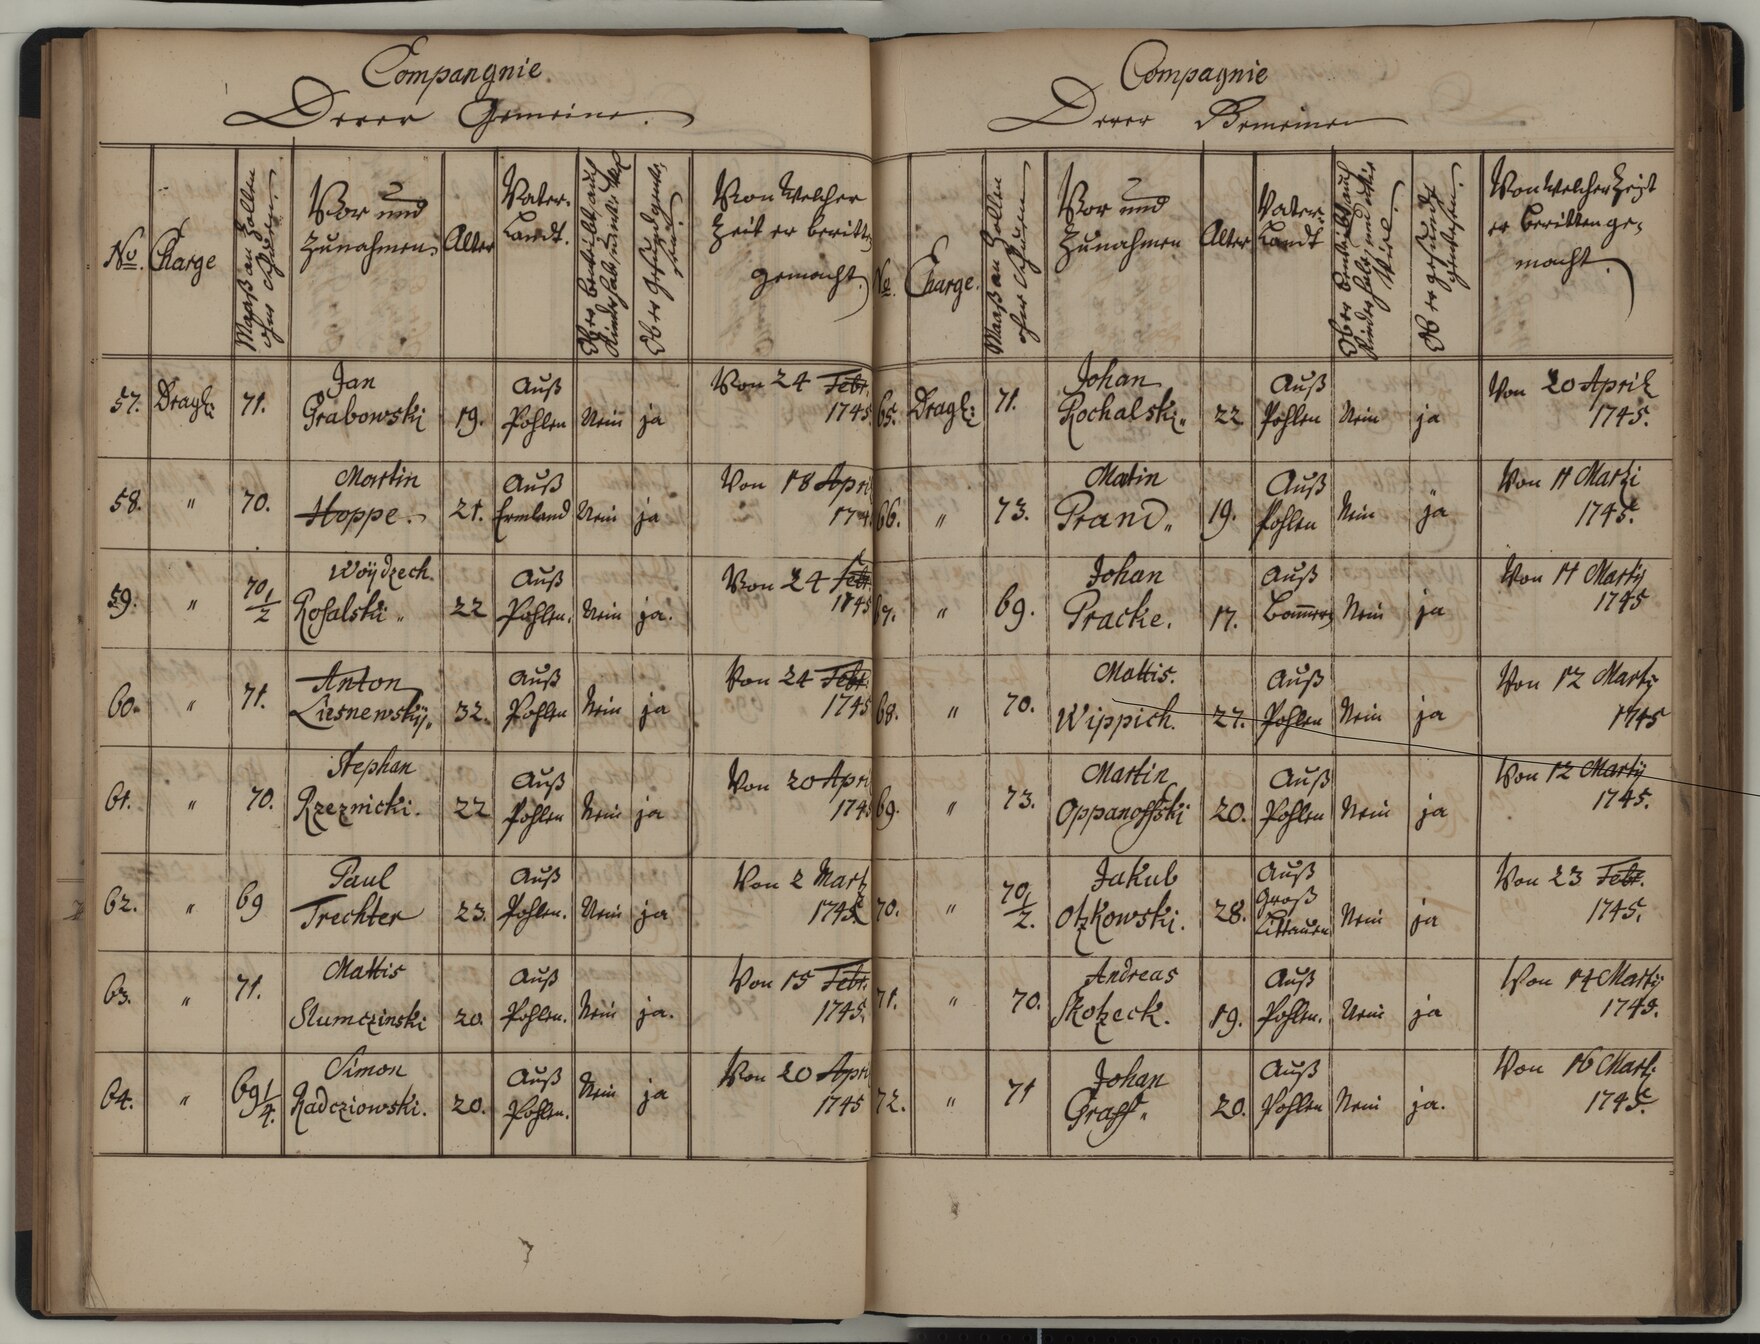 Compangnie.
Derer Gemeine.
No. Charge
Maaß an Zollen
ohne Schuen
Vor und
Zunahmen.
Alter
Vater-
Landt.
Ob er beweibt, auch
Kinder hab, und wie viel
Ob er gesund
Von Welcher
Zeit er beritt
gemacht.
57. Drag: 71. Jan Grabowski 19. Auß Pohlen Nein ja Von 24 Febr. 1745.
58. " 70. Martin Hoppe. 21. Auß Ermland Nein ja Von 18 Apri
59. " 70 1/2 Woÿdzech Rosalski " 22 Auß Pohlen. Nein ja. Von 24 Feb 1745
60. " 71. Anton Lisnewskÿ. 32. Auß Pohlen Nein ja Von 24 Feb. 1745
61. " 70. Stephan Rzeznicki. 22 Auß Pohlen Nein ja Von 20 Apr 174
62. " 69 Paul Trechter 23. Auß Pohlen. Nein ja Von 2 Mart 1745.
63. " 71. Mattis Slumczinski 20. Auß Pohlen. Nein ja. Von 15 Febr. 1745.
64. " 69 1/4. Simon Radcziowski. 20. Auß Pohlen. Nein ja Von 20 Apri 1745
Compagnie
Derer Gemeinen
No. Charge.
Maaß an Zollen
ohne Schuen
Vor und
Zunahmen
Alter
Vater-
Landt
Ob er beweibt auch
Kinder habe, und wie
viel.
Ob er gesundt
Von Welcher Zeit
er beritten ge-
macht.
65. Drag: 71. Johan Rochalski. 22 Auß Pohlen Nein ja Von 20 April 1745.
66. " 73. Matin Prand " 19. Auß Pohlen Nein ja Von 11 Marti 1745.
67. " 69. Johan Pracke. 17. Auß Nein ja Von 11 Martÿ 1745
68. " 70. Mattis. Wippich. 27. Auß Pohlen Nein ja Von 12 Martÿ 1745
69. " 73. Martin Oppanoffski 20. Auß Pohlen Nein ja Von 12 Martÿ 1745.
70. " 70 1/2. Jakub Otzkowski. 28. Auß Groß Littauen Nein ja Von 23 Febr. 1745.
71. " 70. Andreas Skotzeck. 19. Auß Pohlen. Nein ja Von 14 Martÿ 1745.
72. " 71 Johan Graff " 20. Auß Pohlen Nein ja. Von 16 Mart. 1745.